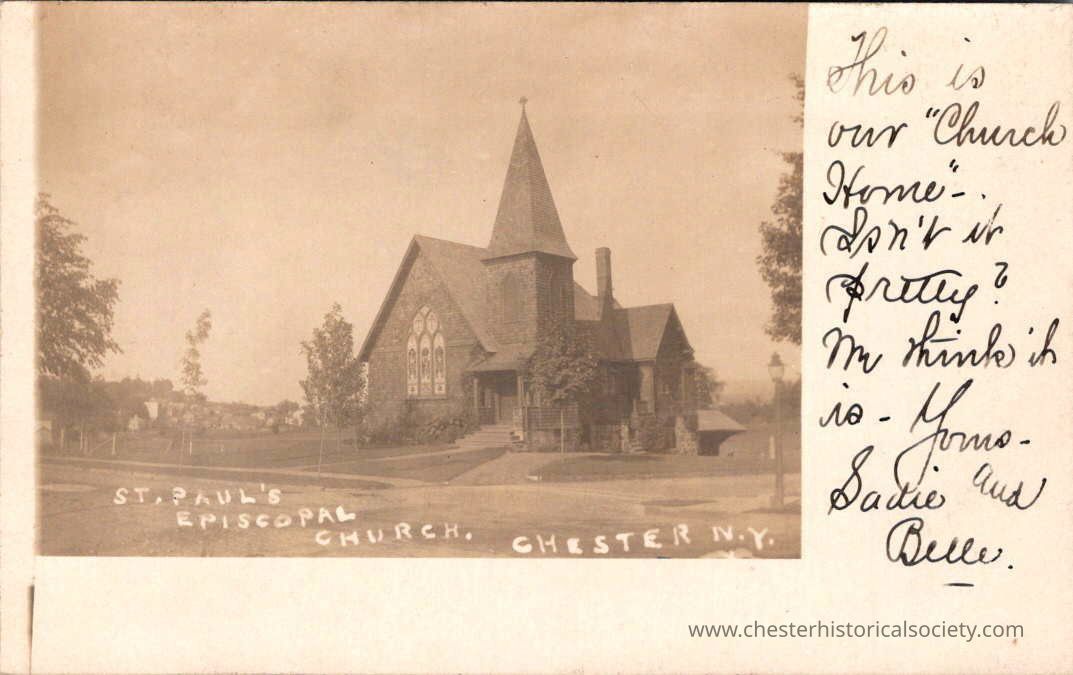 ST. PAUL'S
EPISCOPAL
CHURCH. CHESTER N.Y.
This is
our "Church
Home"-.
Isn't it
pretty?
We think it
is- Yours-
Sadie and
Belle.
www.chesterhistoricalsociety.com